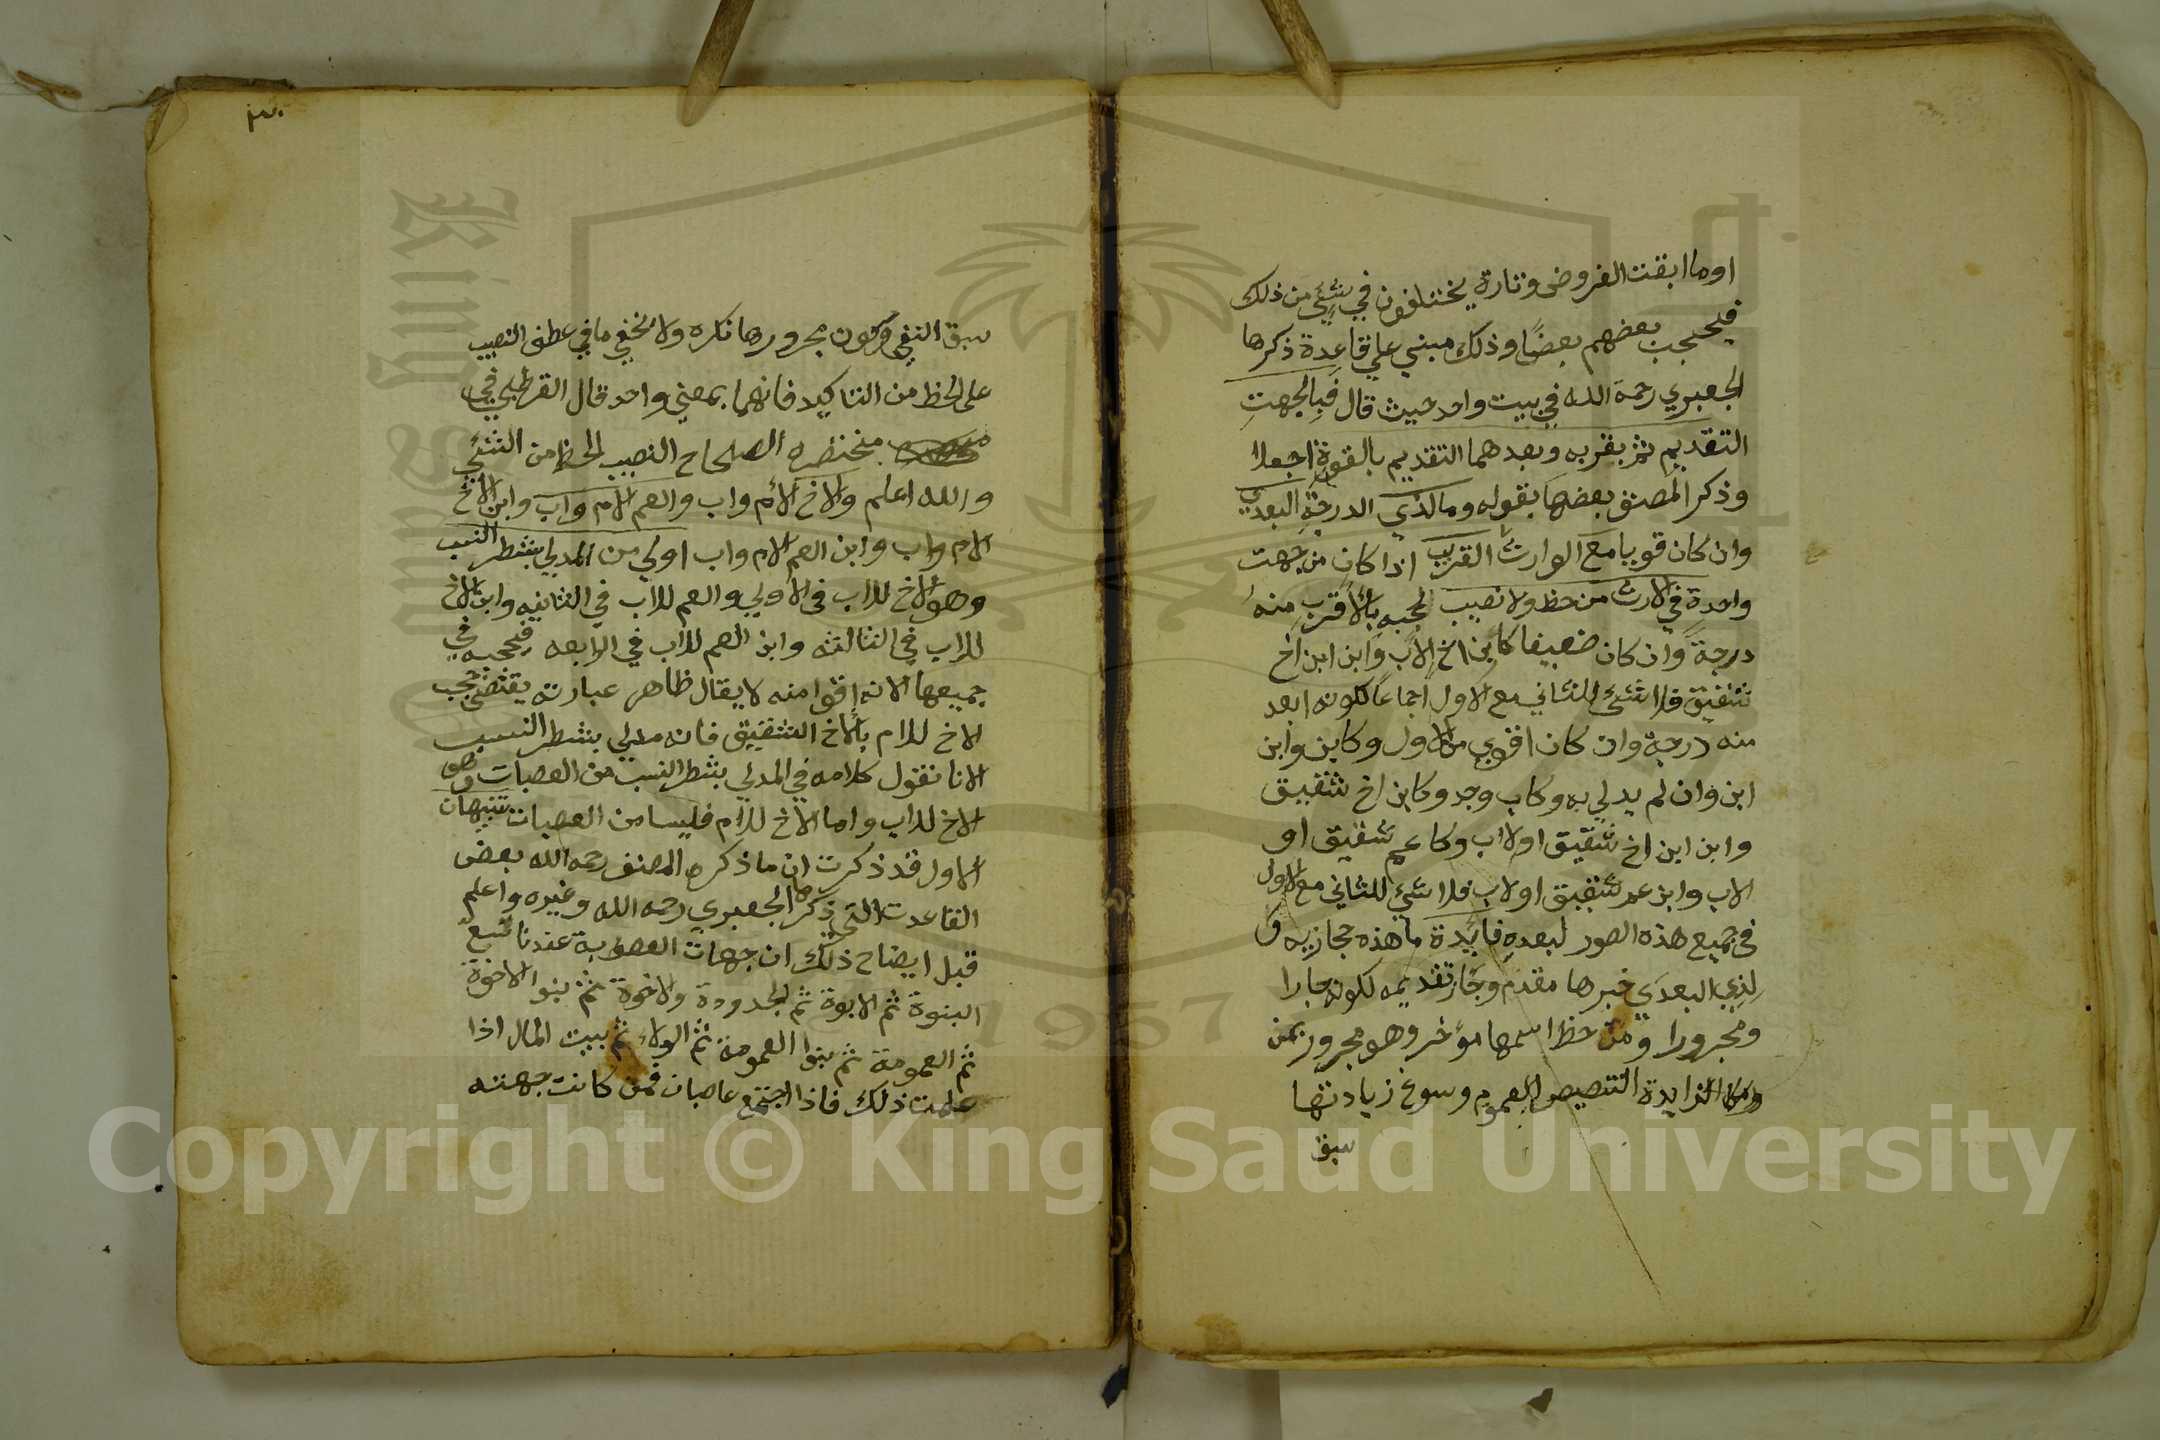 اوما ابقت الفروض وتارة يختلفون في شئي من ذلك
فيحجب بعضهم بعضًا وذلك مبني علي قاعدة ذكرها
الجعبري رحمه الله في بيت واحد حيث قال فبالجهتِ
التقديم ثم بقربه وبعدهما التقديم بالقوة اجعلا
وذكر المصنف بعضها بقوله وما لذي الدرجة البعدي
وان كان قويا مع الوارث القريب اذا كان من جهت
واحدة في الارث من حظ ولا نصيب لحجبه بالاقرب منه
درجة وان كان ضعيفا كابن اخ لاب وابن ابن اخ
شقيق فلا شئ للثاني مع الاول اجماعًا لكونه ابعد
منه درجة وان كان اقوي من الاول وكابن وابن
ابن وان لم يدلي به وكاب وجد وكابن اخ شقيق
وابن ابن اخ شقيق او لاب وكا عم شقيق او
لاب وابن عم شقيق او لاب فلا شئ للثاني مع الاول
في جميع هذه الصور لبعده فايدة ما هذه حجازيه و
لذي البعدي خبرها مقدم وجاز تقديمه لكونه جارا
ومجرورا ومن حظ اسمها مؤخر وهو مجرور بمن
الزايدة التنصيص العموم وسوغ زيادتها
سبق
٣٠
سبق النفي وكون مجرورها نكره ولا يخفي ما في عطف النصيب
على الحظ من التاكيد فانهما بمعني واحد قال القرطبي في
مختصره الصحاح النصيب الحظ من الشئي
والله اعلم والاخ لام واب والعم لام واب وابن الاخ
لام واب وابن العم لام واب اولي من المدلي بشطر النسب
وهو الاخ للاب في الاولي والعم للاب في الثانيه وابن الاخ
للاب في الثالثه وابن العم للاب في الرابعه فيحجبه في
جميعها لانه اقوا منه لا يقال ظاهر عبارته يقتضي حجب
الاخ للام بالاخ الشقيق فانه مدلي بشطر النسب
لانا نقول كلامه في المدلي بشطر النسب من العصبات وهو
الاخ للاب واما الاخ للام فليسا من العصبات تنبيهان
الاول قد ذكرت ان ما ذكره المصنف رحمه الله بعض
القاعدت التي ذكرها الجعبري رحمه الله وغيره واعلم
قبل ايضاح ذلك ان جهات العصوبة عندنا سبع
البنوة ثم الابوة ثم الجدودة والاخوة ثم بنوا الاخوة
ثم العمومة ثم بنوا العمومة ثم الولاء ثم بيت المال اذا
علمت ذلك فاذا اجتمع عاصبان فمن كانت جهته
King Saud
1957
Copyright © King Saud University